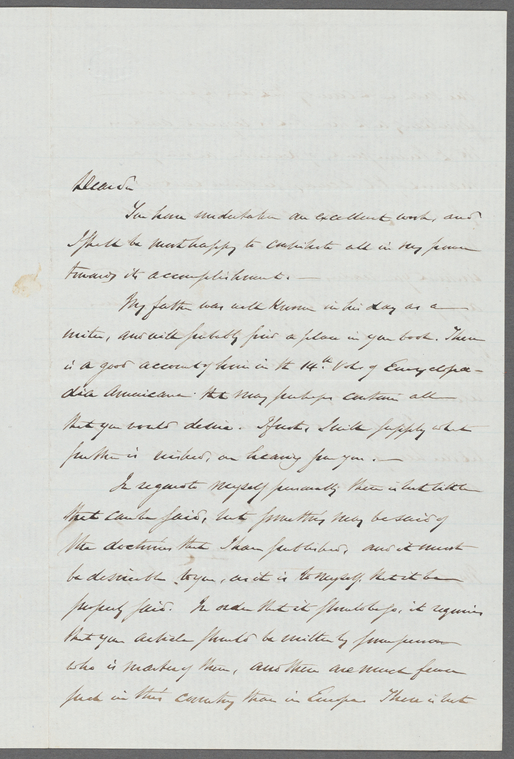 Dear Sir
You have undertaken an excellent work, and
I shall be most happy to contribute all in my power
towards its accomplishment. —
My father was well known in his day as a
writer, and will probably find a place in your book. There
is a good account of him in the 14th Vol. of Encyclopæ-
dia Americana that may perhaps contain all
that you would desire. If not, I will supply what
further is wished, on hearing from you. —
In regard to myself personally there is but little
that can be said, but something may be said of
the doctrines that I have published, and it must
be desirable to you, as it is to myself, that it be
properly said. In order that it should be so, it requires
that your article should be written by some person
who is master of them, and there are much fewer
such in this country than in Europe. There is but